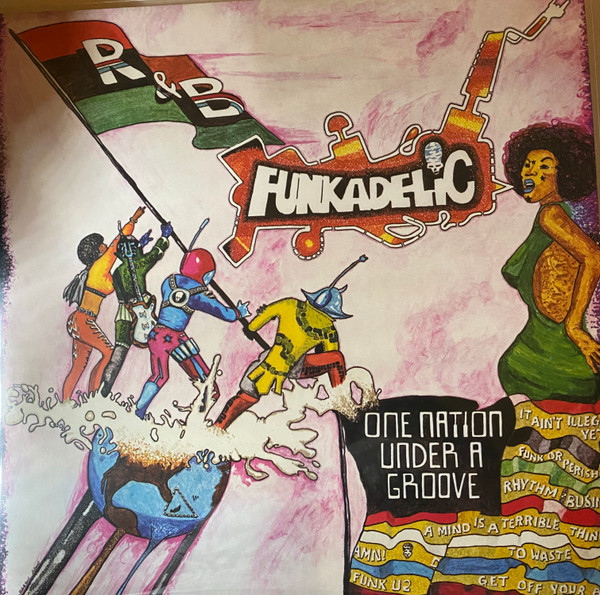 R & B
FUNKADELIC
ONE NATION
UNDER A
GROOVE
IT AIN'T ILLEG
YET
FUNK OR PERISH
RHYTHM & BUSIN
A MIND IS A TERRIBLE THIN
AMN!
TO WASTE
FUNK U2
GET OFF YOUR A